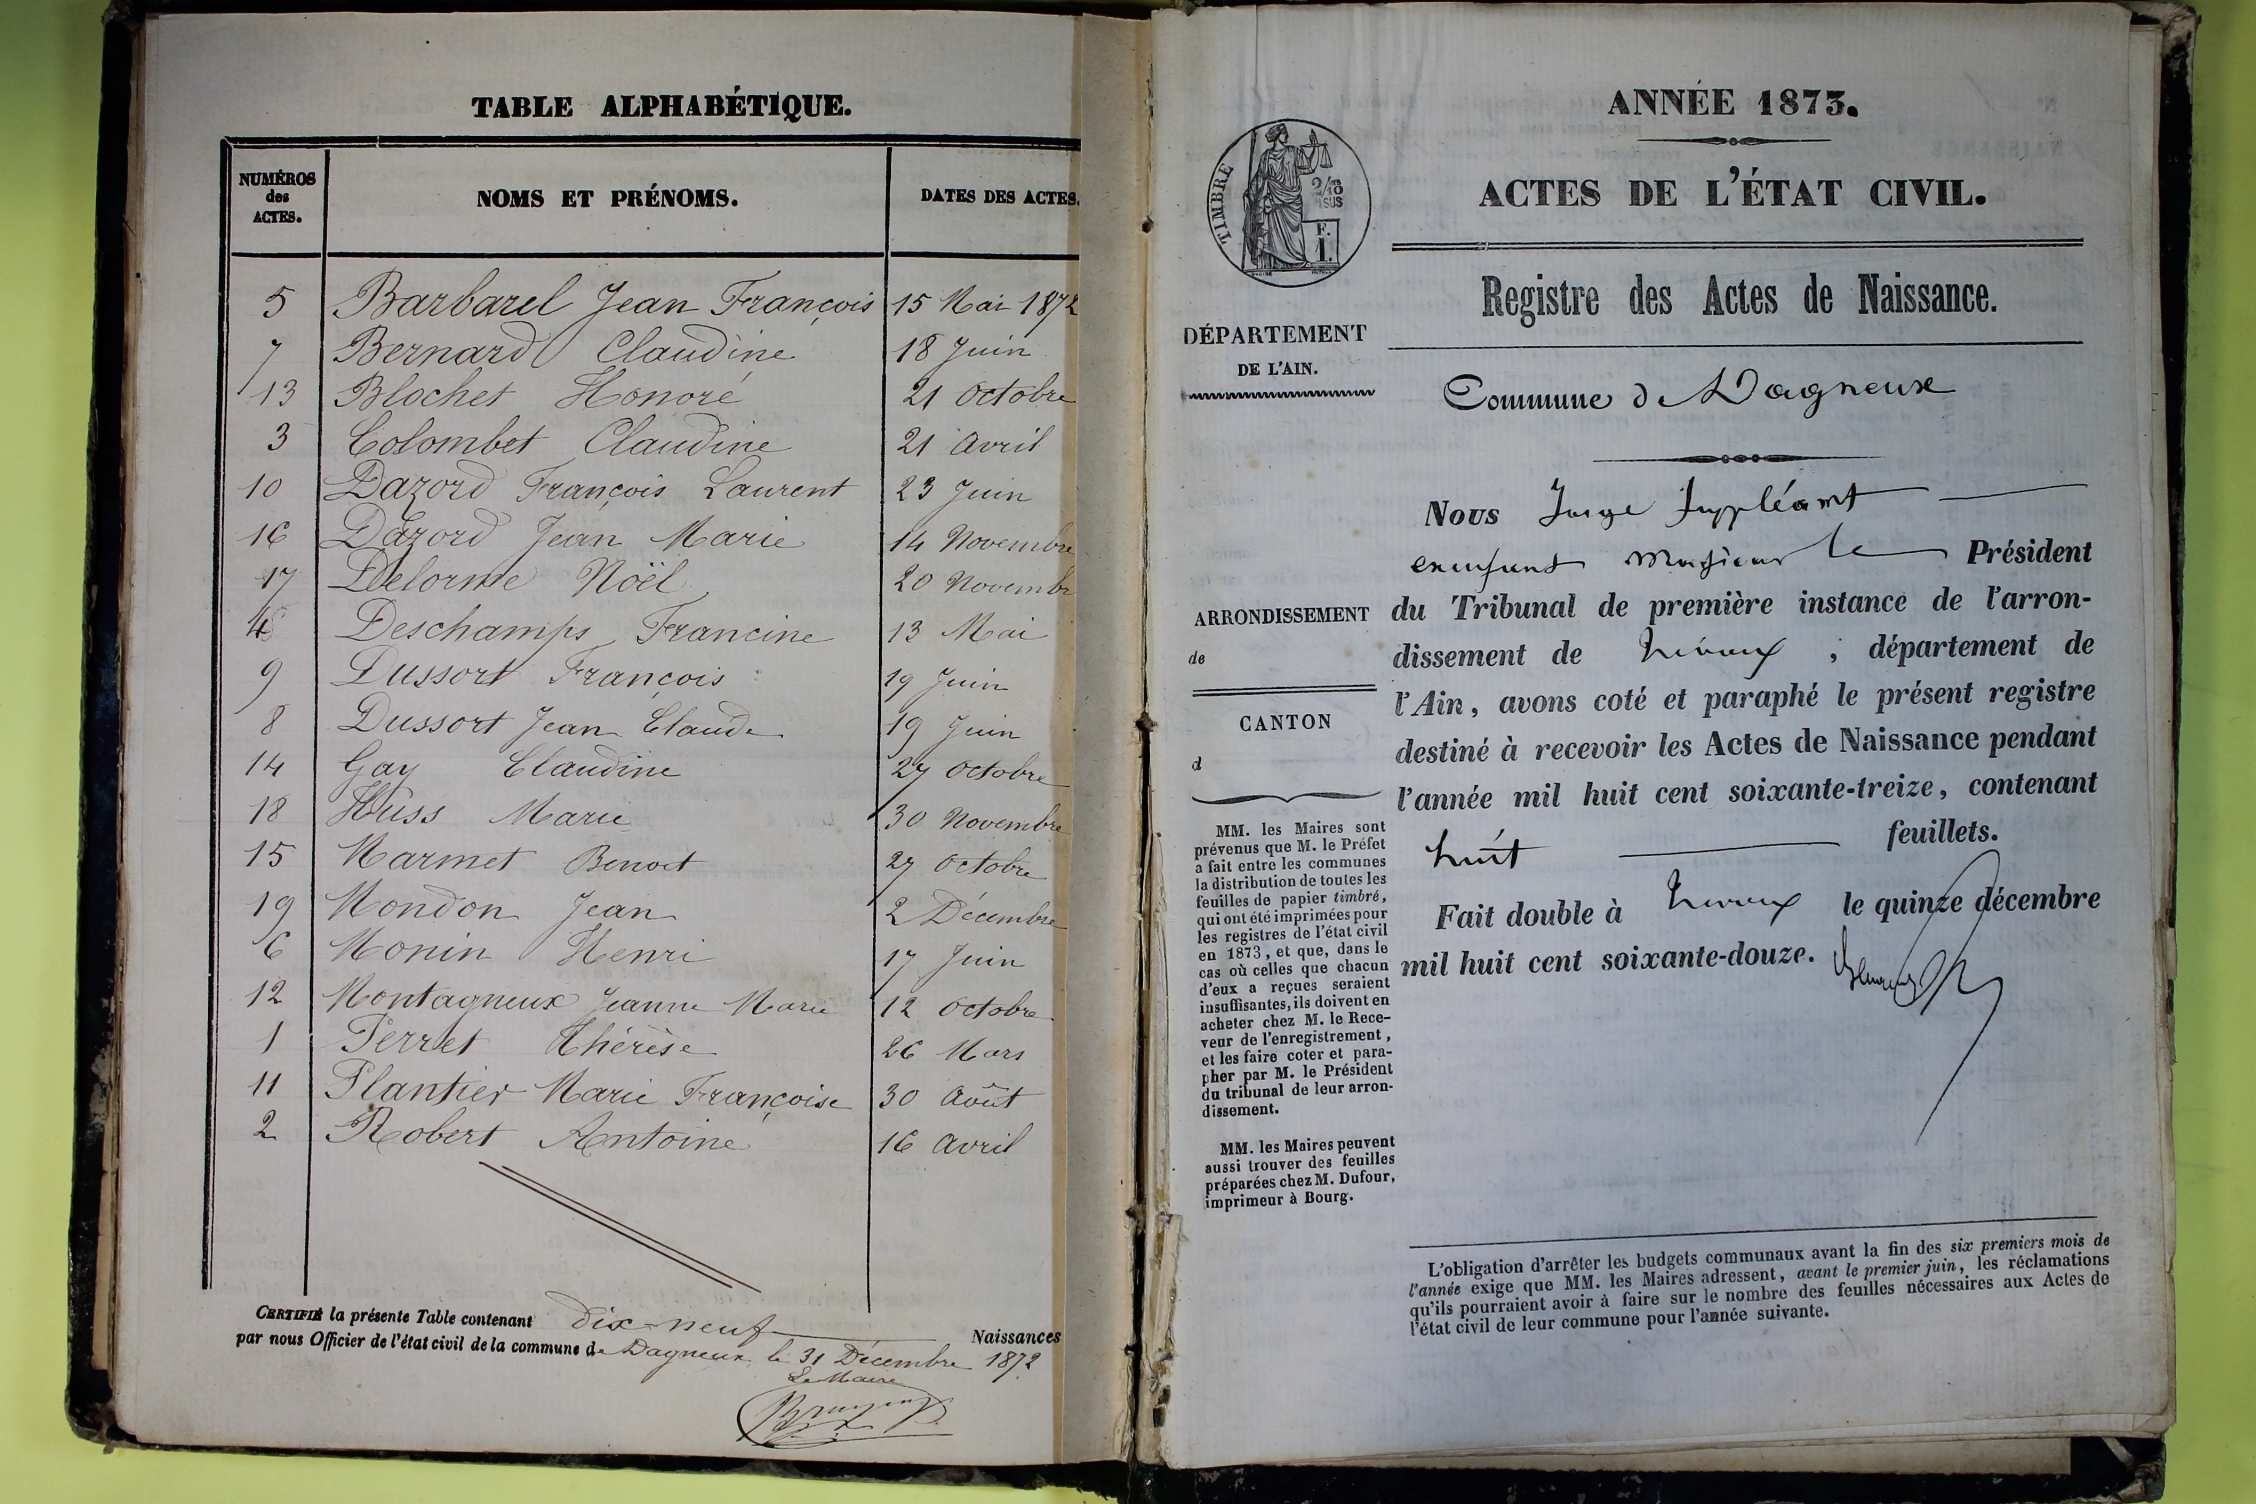 TABLE ALPHABÉTIQUE.
NUMÉROS des ACTES.
NOMS ET PRÉNOMS.
DATES DES ACTES.
5 Barbarel Jean François 15 Mai 1872
7 Bernard Claudine 18 Juin
13 Blochet Honoré 21 Octobre
3 Colombet Claudine 21 Avril
10 Dazord François Laurent 23 Juin
16 Dazord Jean Marie 14 Novembre
17 Delorme Noël 20 Novembre
4 Deschamps Francine 13 Mai
9 Dussort François 19 Juin
8 Dussort Jean Claude 19 Juin
14 Gay Claudine 27 Octobre
18 Huss Marie 30 Novembre
15 Marmet Benoit 27 Octobre
19 Mondon Jean 2 Décembre
6 Monin Henri 17 Juin
12 Montagneux Jeanne Marie 12 Octobre
1 Perret Thérèse 26 Mars
11 Plantier Marie Françoise 30 Août
2 Robert Antoine 16 Avril
CERTIFIÉ la présente Table contenant dix-neuf Naissances
par nous Officier de l'état civil de la commune de Dagneux, le 31 Décembre 1872
Le Maire
ANNÉE 1873.
ACTES DE L'ÉTAT CIVIL.
TIMBRE
2/10 EN SUS
F. 1.
Registre des Actes de Naissance.
DÉPARTEMENT
DE L'AIN.
Commune de Dagneux
Nous Juge Suppléant
Monsieur le Président
du Tribunal de première instance de l'arron-
dissement de Trévoux ; département de
l'Ain, avons coté et paraphé le présent registre
destiné à recevoir les Actes de Naissance pendant
l'année mil huit cent soixante-treize, contenant
huit feuillets.
Fait double à Trévoux le quinze décembre
mil huit cent soixante-douze.
ARRONDISSEMENT
de
CANTON
d
MM. les Maires sont
prévenus que M. le Préfet
a fait entre les communes
la distribution de toutes les
feuilles de papier timbré,
qui ont été imprimées pour
les registres de l'état civil
en 1873, et que, dans le
cas où celles que chacun
d'eux a reçues seraient
insuffisantes, ils doivent en
acheter chez M. le Rece-
veur de l'enregistrement,
et les faire coter et para-
pher par M. le Président
du tribunal de leur arron-
dissement.
MM. les Maires peuvent
aussi trouver des feuilles
préparées chez M. Dufour,
imprimeur à Bourg.
L'obligation d'arrêter les budgets communaux avant la fin des six premiers mois de
l'année exige que MM. les Maires adressent, avant le premier juin, les réclamations
qu'ils pourraient avoir à faire sur le nombre des feuilles nécessaires aux Actes de
l'état civil de leur commune pour l'année suivante.